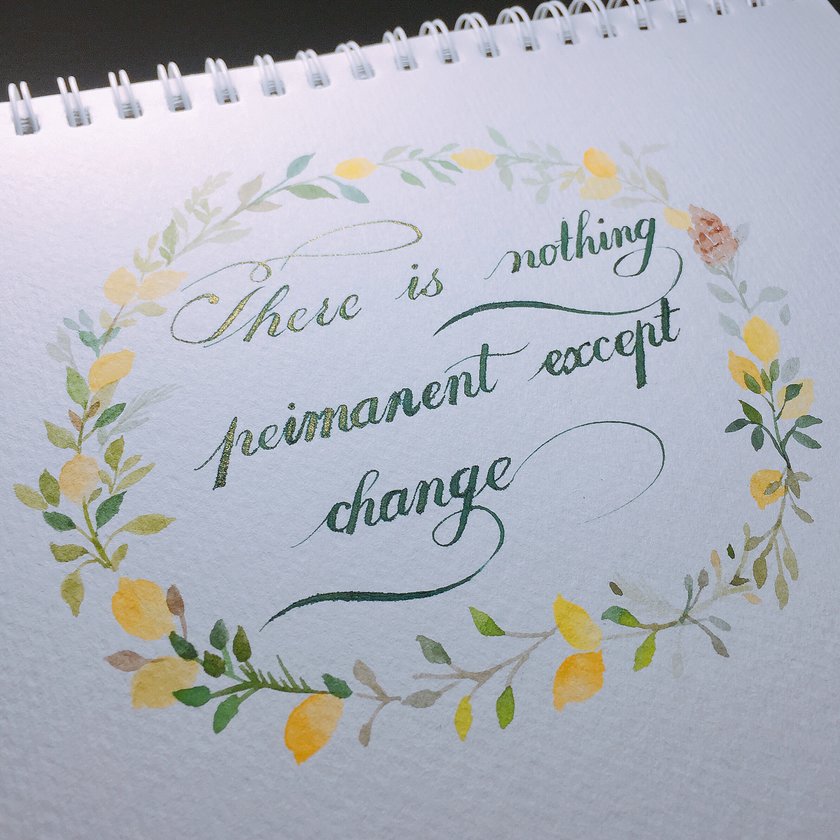 There is nothing
peimanent except
change